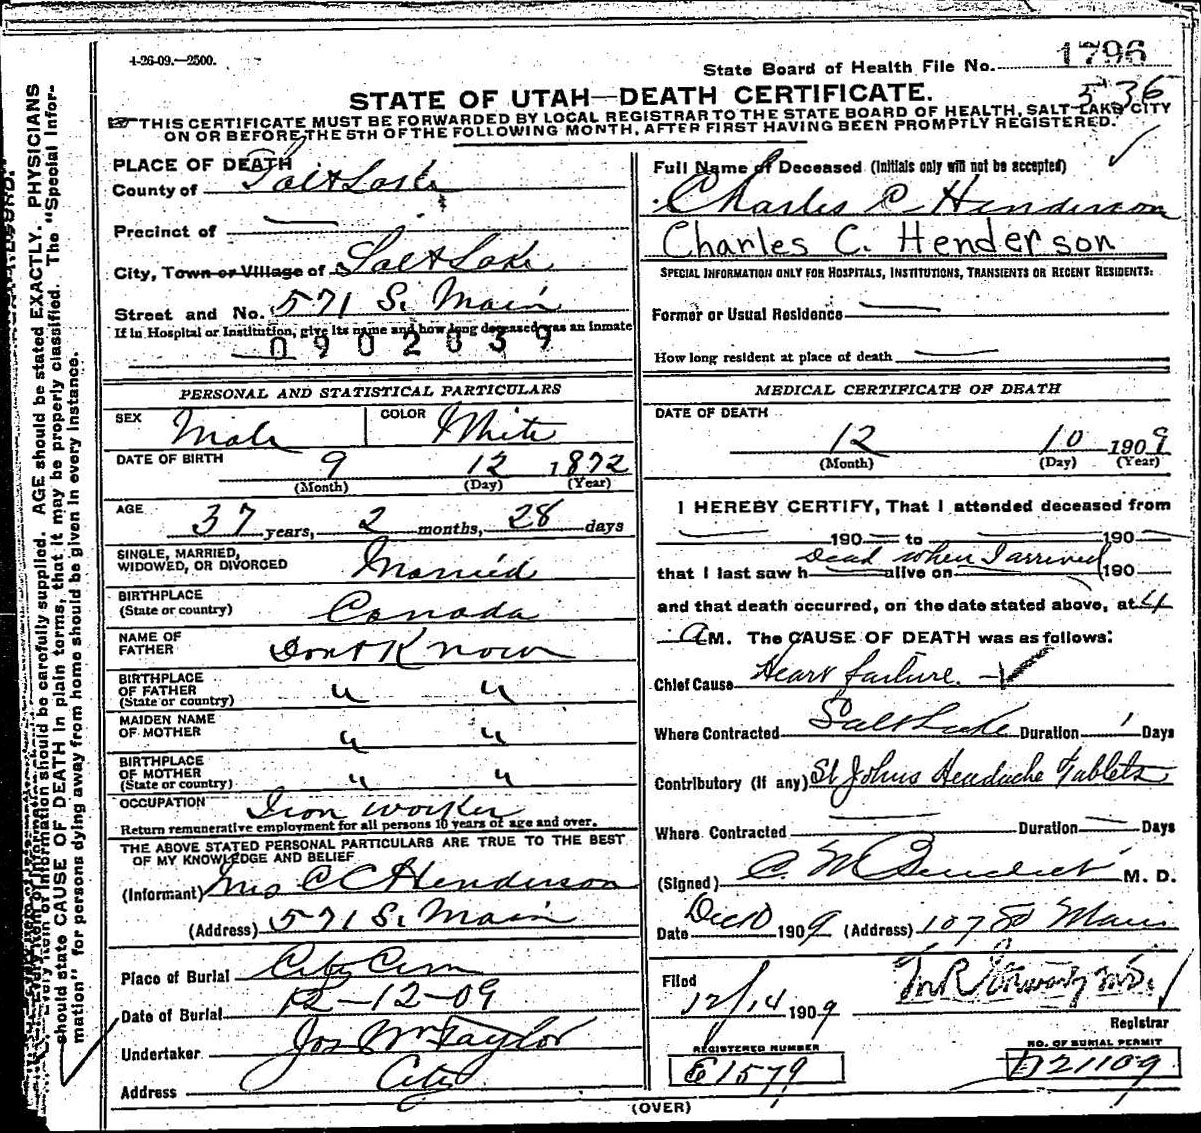 4-26-09.—2500.
State Board of Health File No. 1796
536
STATE OF UTAH—DEATH CERTIFICATE.
☞THIS CERTIFICATE MUST BE FORWARDED BY LOCAL REGISTRAR TO THE STATE BOARD OF HEALTH, SALT LAKE CITY
ON OR BEFORE THE 5TH OF THE FOLLOWING MONTH, AFTER FIRST HAVING BEEN PROMPTLY REGISTERED.
PLACE OF DEATH
County of Salt Lake
Precinct of —
City, Town or Village of Salt Lake
Street and No. 571 S. Main
If in Hospital or Institution, give its name and how long deceased was an inmate
0902039
PERSONAL AND STATISTICAL PARTICULARS
SEX Male COLOR White
DATE OF BIRTH 9 12 1872
(Month) (Day) (Year)
AGE 37 years, 2 months, 28 days
SINGLE, MARRIED,
WIDOWED, OR DIVORCED Married
BIRTHPLACE
(State or country) Canada
NAME OF
FATHER Dont Know
BIRTHPLACE
OF FATHER
(State or country) " "
MAIDEN NAME
OF MOTHER " "
BIRTHPLACE
OF MOTHER
(State or country) " "
OCCUPATION Iron worker
Return remunerative employment for all persons 10 years of age and over.
THE ABOVE STATED PERSONAL PARTICULARS ARE TRUE TO THE BEST
OF MY KNOWLEDGE AND BELIEF
(Informant) Mrs C C Henderson
(Address) 571 S. Main
Place of Burial City Cem
Date of Burial 12-12-09
Undertaker Jos Wm Taylor
Address City
Full Name of Deceased (Initials only will not be accepted)
Charles C Henderson
Charles C. Henderson
SPECIAL INFORMATION ONLY FOR HOSPITALS, INSTITUTIONS, TRANSIENTS OR RECENT RESIDENTS:
Former or Usual Residence —
How long resident at place of death —
MEDICAL CERTIFICATE OF DEATH
DATE OF DEATH
12 10 1909
(Month) (Day) (Year)
I HEREBY CERTIFY, That I attended deceased from
— 190— to — 190—
Dead when I arrived
that I last saw h— alive on — 190—
and that death occurred, on the date stated above, at 4
A M. The CAUSE OF DEATH was as follows:
Chief Cause Heart failure.
Where Contracted Salt Lake Duration 1 Days
Contributory (if any) St Johns Headache Tablets
Where Contracted — Duration — Days
(Signed) C. M. Benedict M. D.
Date Dec 10 1909 (Address) 107 So Main
Filed
12/14 1909
Registrar
REGISTERED NUMBER
E1579
NO. OF BURIAL PERMIT
D21109
(OVER)
information should be carefully supplied. AGE should be stated EXACTLY. PHYSICIANS
should state CAUSE OF DEATH in plain terms, that it may be properly classified. The "Special Infor-
mation" for persons dying away from home should be given in every instance.